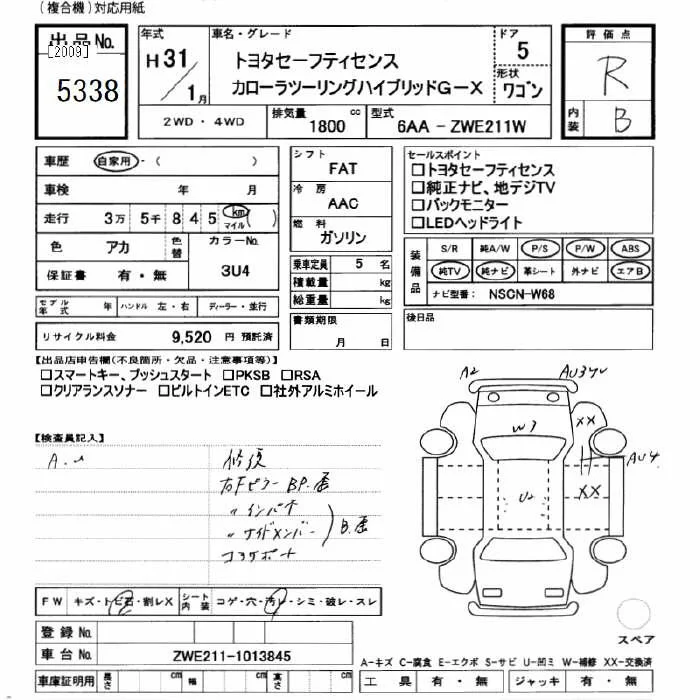 (複合機)対応用紙
出品No.
[2009]
5338
年式
H31/1月
車名・グレード
トヨタセーフティセンス
カローラツーリングハイブリッドG-X
ドア
5
形状
ワゴン
評価点
R
内装
B
2WD・4WD
排気量
1800 cc
型式
6AA - ZWE211W
車歴 自家用・( )
車検 年 月
走行 3万 5千 8 4 5 km マイル ( )
色 アカ 色替
カラーNo.
3U4
保証書 有・無
モデル年式 年 ハンドル 左・右 ディーラー・並行
リサイクル料金 9,520 円 預託済
シフト
FAT
冷房
AAC
燃料
ガソリン
乗車定員 5 名
積載量 kg
総重量 kg
書類期限
月 日
セールスポイント
□トヨタセーフティセンス
□純正ナビ、地デジTV
□バックモニター
□LEDヘッドライト
装備品
S/R 純A/W P/S P/W ABS
純TV 純ナビ 革シート 外ナビ エアB
ナビ型番: NSCN-W68
後日品
【出品店申告欄(不良箇所・欠品・注意事項等)】
□スマートキー、プッシュスタート □PKSB □RSA
□クリアランスソナー □ビルトインETC □社外アルミホイール
【検査員記入】
修復
右Fピラー BP.歪
〃 インパネ
〃 サイドメンバー
B.歪
コアサポート
A2
W3
XX
AU4
U2
XX
FW キズ・トビ石・割レX シート内装 コゲ・穴・汚レ・シミ・破レ・スレ
登録No.
車台No. ZWE211-1013845
車庫証明用 長さ cm 幅 cm 高さ cm
スペア
A-キズ C-腐食 E-エクボ S-サビ U-凹ミ W-補修 XX-交換済
工具 有・無 ジャッキ 有・無